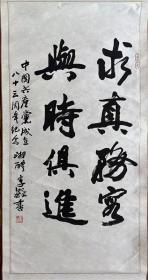 求真務實
與時俱進
中國共產黨成立
八十三周年纪念